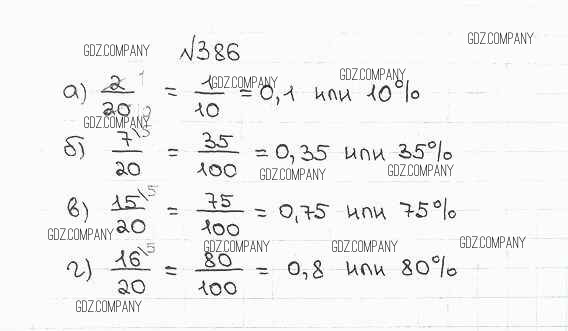 GDZ.COMPANY №386 GDZ.COMPANY
а) 2/20 = 1/10 = 0,1 или 10%
GDZ.COMPANY GDZ.COMPANY
GDZ.COMPANY
б) 7\5/20 = 35/100 = 0,35 или 35%
GDZ.COMPANY GDZ.COMPANY
в) 15\5/20 = 75/100 = 0,75 или 75%
GDZ.COMPANY GDZ.COMPANY GDZ.COMPANY GDZ.COMPANY
г) 16\5/20 = 80/100 = 0,8 или 80%
GDZ.COMPANY